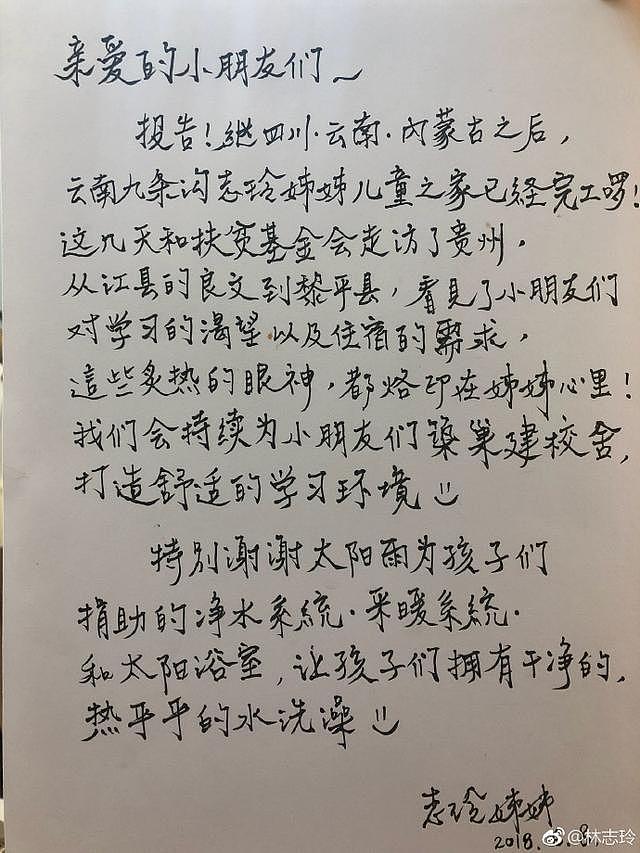 亲爱的小朋友们~
投告!继四川·云南·内蒙古之后,
云南九条沟志玲姊姊儿童之家已经完工啰!
这几天和扶贫基金会走访了贵州,
从江县的良文到黎平县,看見了小朋友们
对学习的渴望以及住宿的需求,
這些炙热的眼神,都烙印在姊姊心里!
我们会持续为小朋友们築巢建校舍,
打造舒适的学习环境
特别谢谢太阳雨为孩子们
捐助的净水系統·采暖系統·
和太阳浴室,让孩子们拥有干净的,
热乎乎的水洗澡
志玲姊姊
2018.
@林志玲